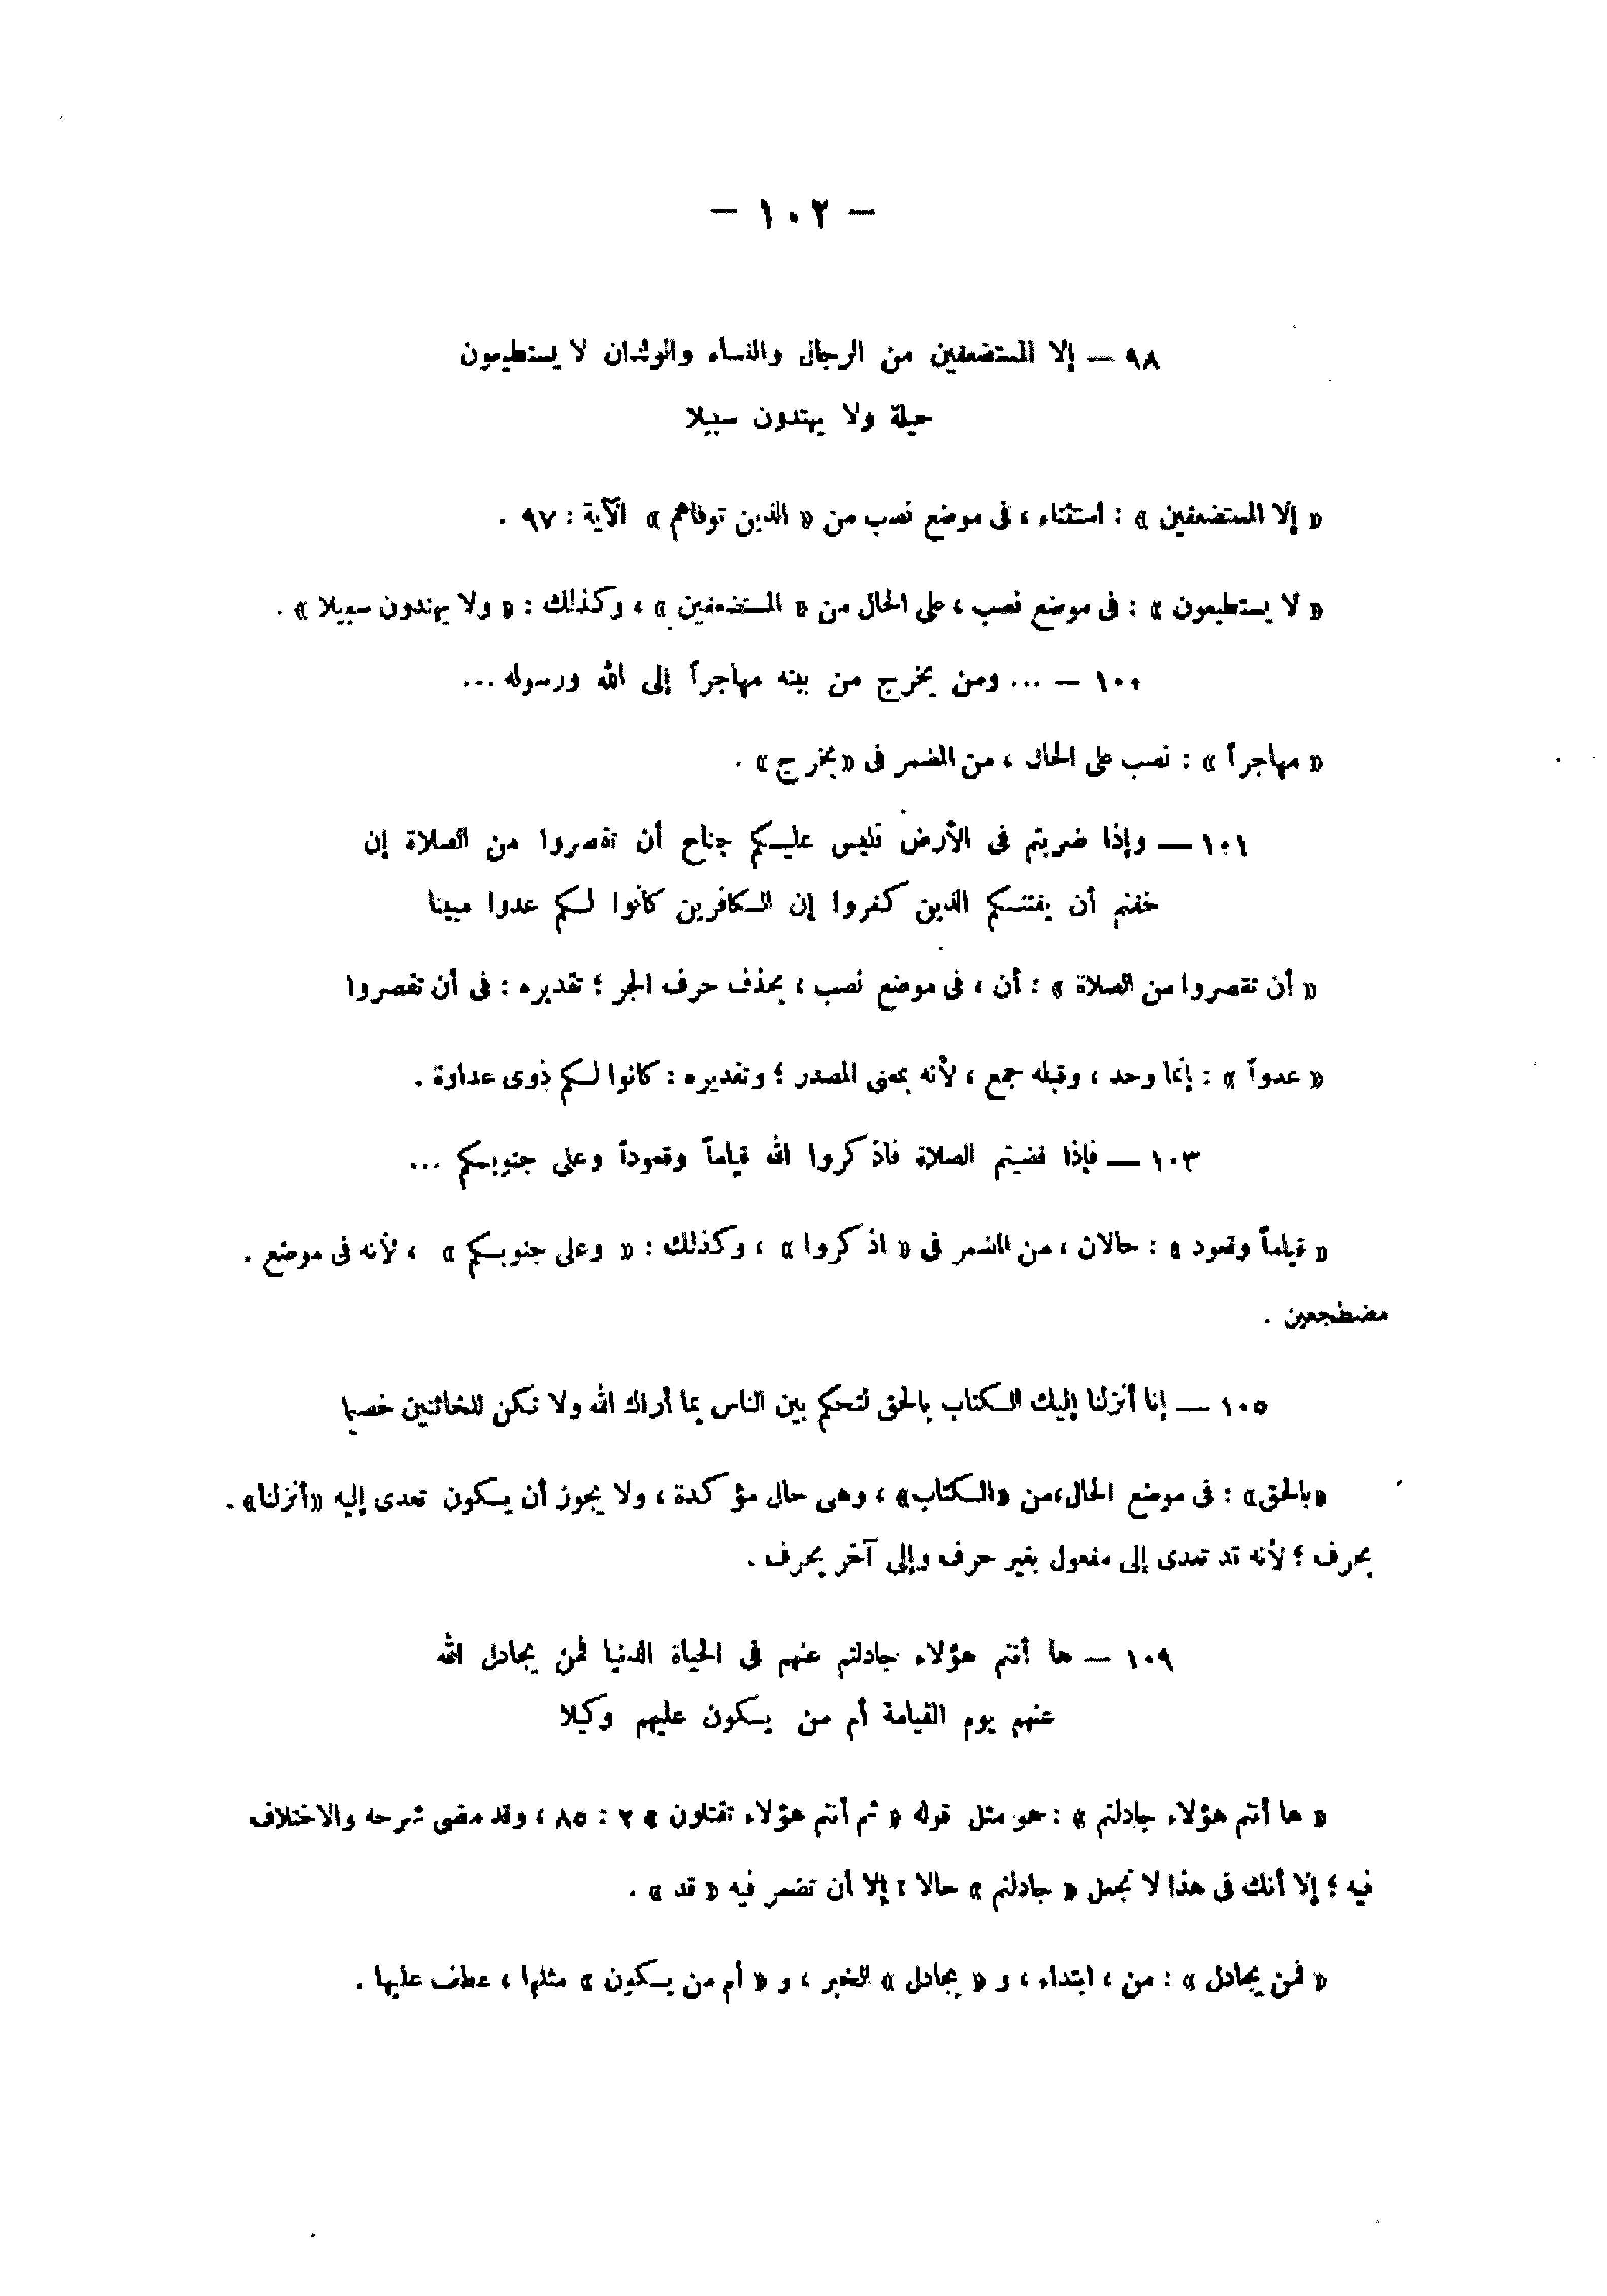 — ١٠٢ —
٩٨ — إلا المستضعفين من الرجال والنساء والولدان لا يستطيعون
حيلة ولا يهتدون سبيلا
« إلا المستضعفين » : استثناء ، فى موضع نصب من « الذين توفاهم » الآية : ٩٧ .
« لا يستطيعون » : فى موضع نصب ، على الحال من « المستضعفين » ، وكذلك : « ولا يهتدون سبيلا » .
١٠٠ — ... ومن يخرج من بيته مهاجراً إلى الله ورسوله ...
« مهاجراً » : نصب على الحال ، من المضمر فى «يخرج» .
١٠١ — وإذا ضربتم فى الأرض فليس عليكم جناح أن تقصروا من الصلاة إن
خفتم أن يفتنكم الذين كفروا إن الكافرين كانوا لكم عدوا مبينا
« أن تقصروا من الصلاة » : أن ، فى موضع نصب ، بحذف حرف الجر ؛ تقديره : فى أن تقصروا
« عدواً » : إنما وحد ، وقبله جمع ، لأنه بمعنى المصدر ؛ وتقديره : كانوا لكم ذوى عداوة .
١٠٣ — فإذا قضيتم الصلاة فاذكروا الله قياماً وقعوداً وعلى جنوبكم ...
« قياماً وقعود » : حالان ، من المضمر فى « اذكروا » ، وكذلك : « وعلى جنوبكم » ، لأنه فى موضع .
مضطجعين .
١٠٥ — إنا أنزلنا إليك الكتاب بالحق لتحكم بين الناس بما أراك الله ولا تكن للخائنين خصيما
«بالحق» : فى موضع الحال،من «الكتاب» ، وهى حال مؤكدة ، ولا يجوز أن يكون تعدى إليه «أنزلنا» .
بحرف ؛ لأنه قد تعدى إلى مفعول بغير حرف وإلى آخر بحرف .
١٠٩ — ها أنتم هؤلاء جادلتم عنهم فى الحياة الدنيا فمن يجادل الله
عنهم يوم القيامة أم من يكون عليهم وكيلا
« ها أنتم هؤلاء جادلتم » : هو مثل قوله « ثم أنتم هؤلاء تقتلون » ٢ : ٨٥ ، وقد مضى شرحه والاختلاف
فيه ؛ إلا أنك فى هذا لا تجعل « جادلتم » حالا ؛ إلا أن تضمر فيه « قد » .
« فمن يجادل » : من ، ابتداء ، و « يجادل » الخبر ، و « أم من يكون » مثلها ، عطف عليها .